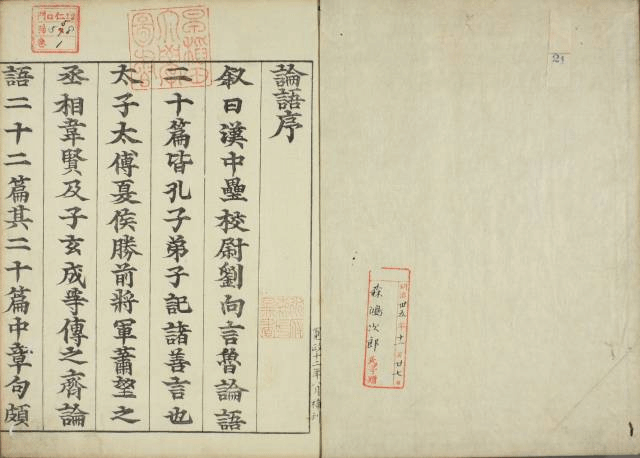 論語序
叙曰漢中壘校尉劉向言魯論語
二十篇皆孔子弟子記諸善言也
太子太傅夏侯勝前將軍蕭望之
丞相韋賢及子玄成等傳之齊論
語二十二篇其二十篇中章句頗
21
明治卅五年十一月廿七日
森鴻次郎
氏寄贈
門
仁
口
1